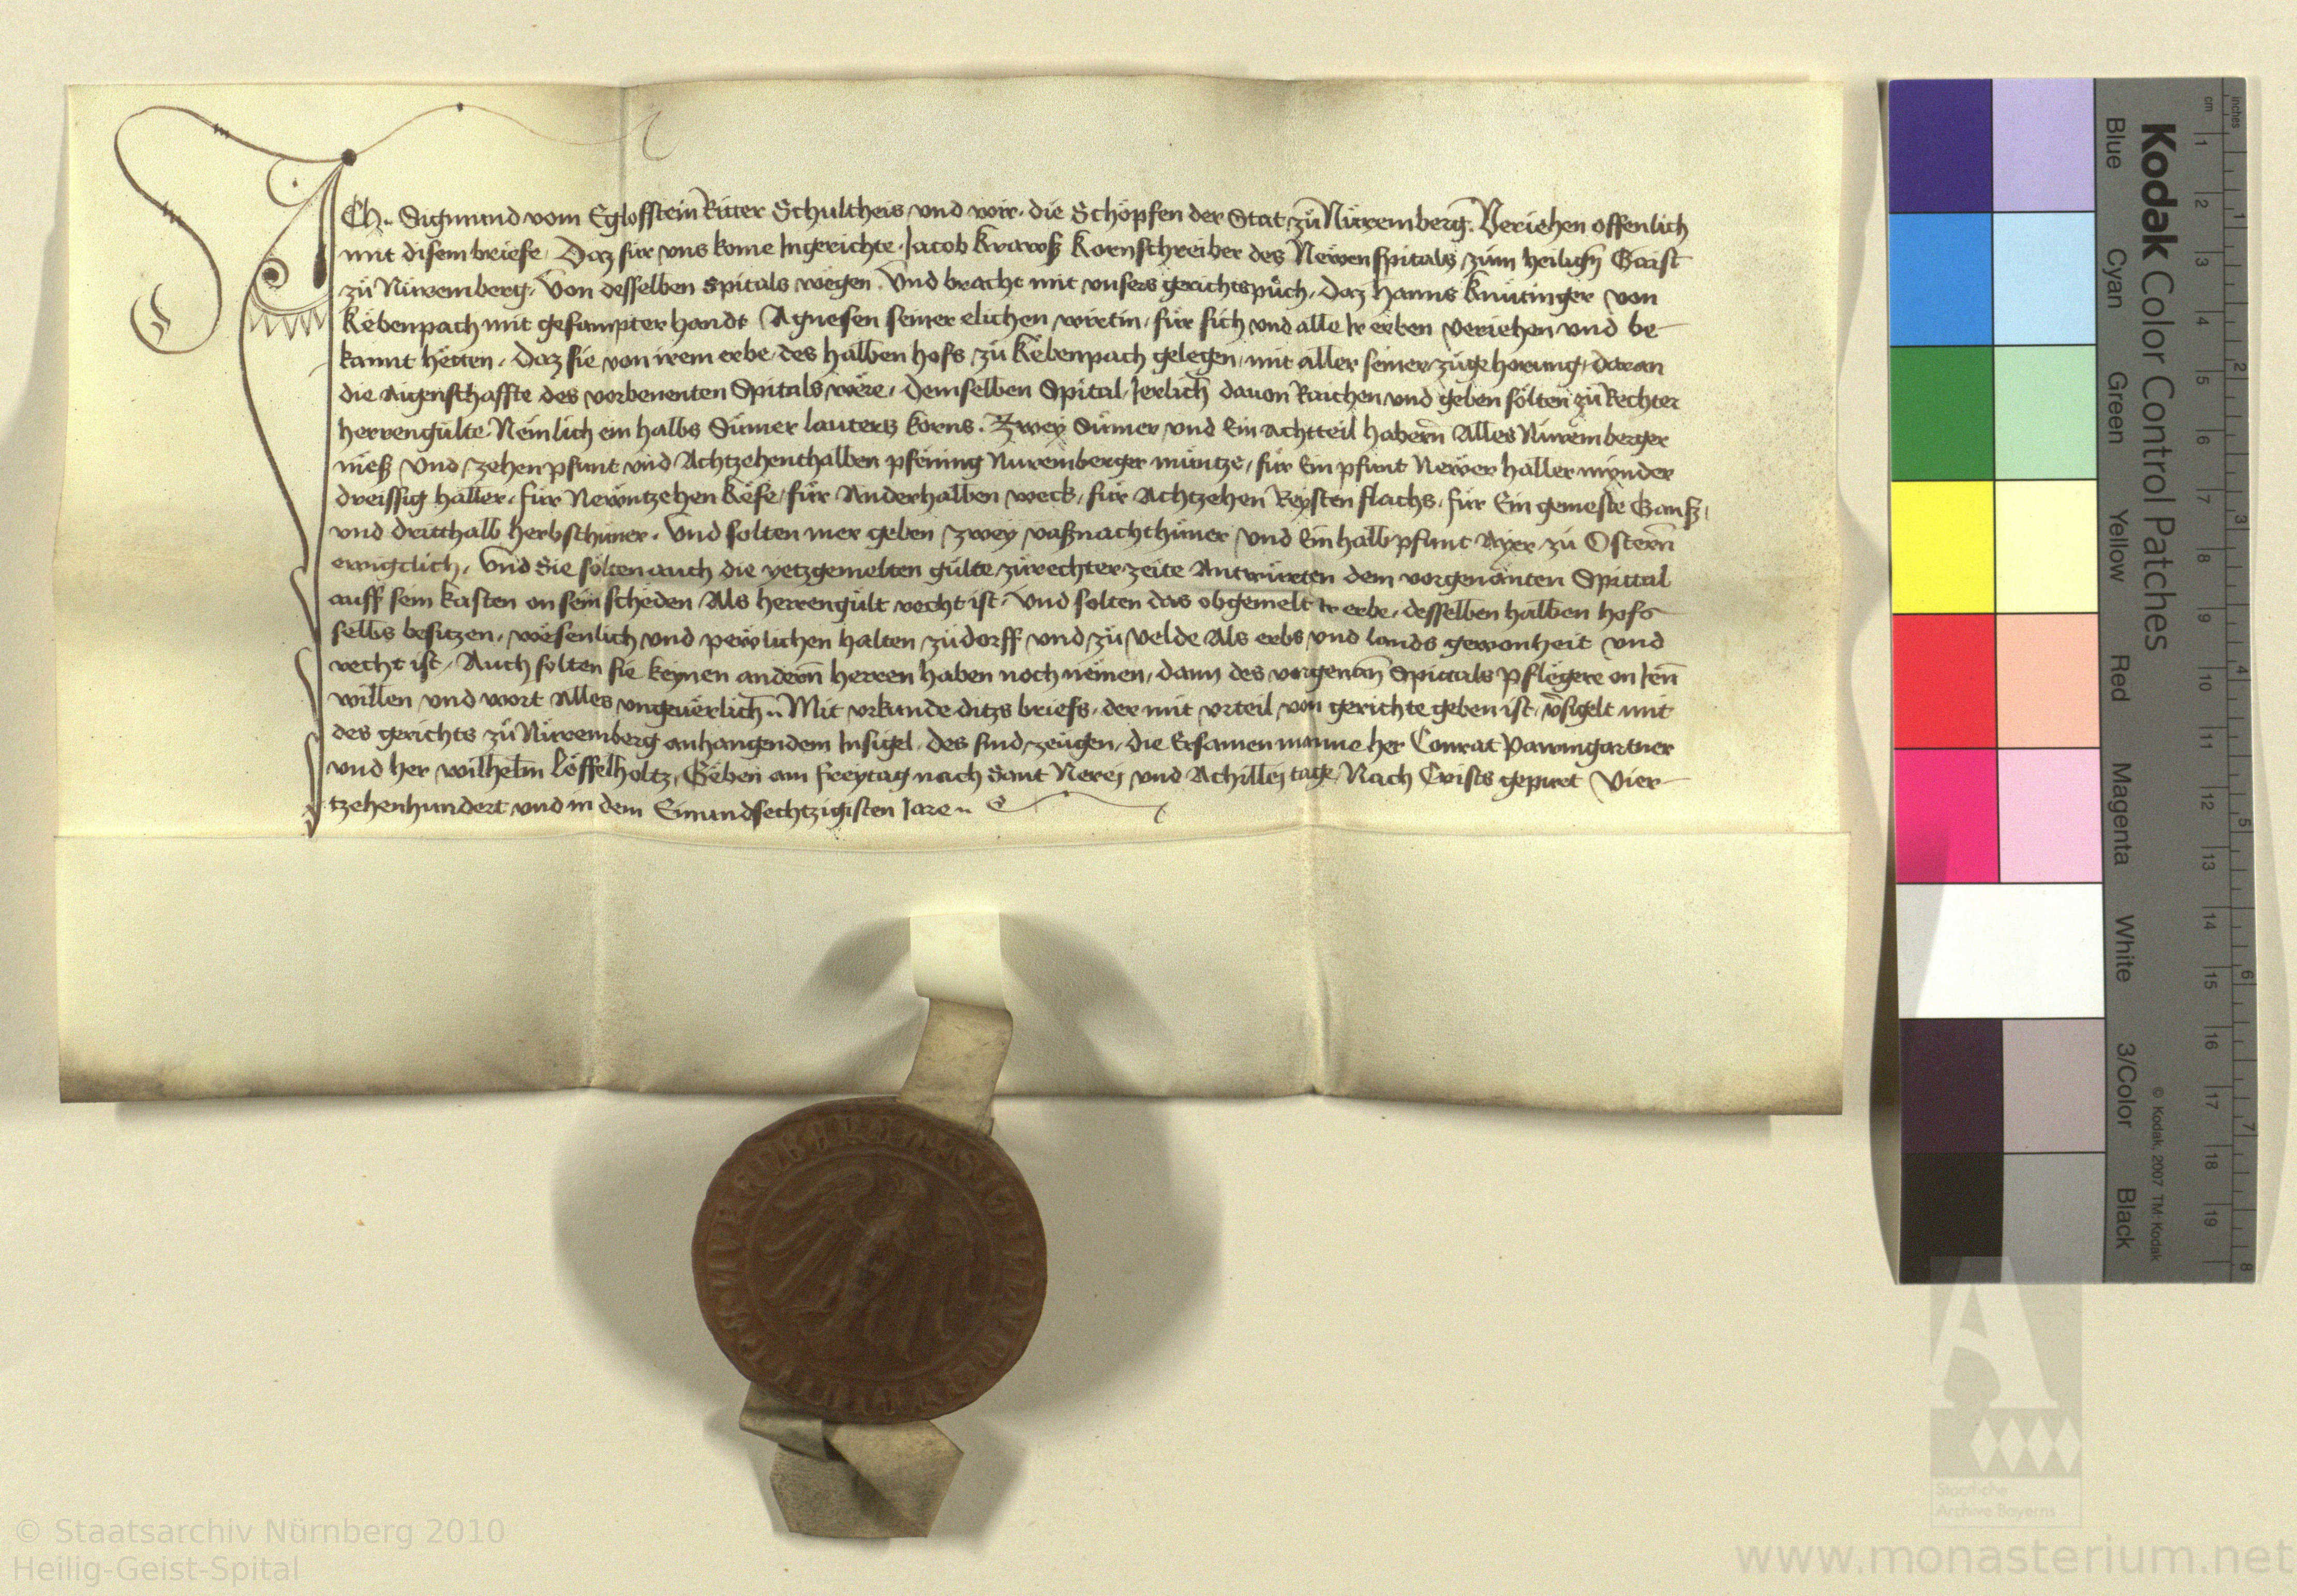 ICh.. Sigmund vom Egloffstein Ritter Schultheis und wir. die Schöpfen der Stat zů Nůremberg. Veriehen offenlich
mit disem briefe. Daz für uns kome Ingerichte. Jacob Krawß Kornschreiber des Newen spitals zům heilign̄ Gaist
zů Nůremberg. Von desselben spitals wegen. Und bracht mit unsers gerichtspůch. daz Hanns Knüttinger von
Kebenpach mit gesampter handt Agnesen seiner elichen wirtin. für sich und alle Ir erben veriehen und be-
kannt hetten. Daz sie von irem erbe. des halben hofs zů Kebenpach gelegen. mit aller seiner zůgehorung. daran
die Aigenschaffte des vorbenenten Spitals wëre. demselben Spital Jerlich davon Raichen und geben sölten zů Rechter
herrengülte. Nemlich ein halbs Sümer lauters korns. Zwey Sümer und Ein achtteil habern̄ Alles Nůremberger
meß Und zehen pfunt und Achtzehenthalben pfening Nuremberger müntze. für Ein pfunt Newer haller mynder
dreissig haller. für Newntzehen Kese. für Anderhalben weck. für Achtzehen Reysten flachs. für Ein gemeste Ganß.
und dritthalb herbsthüner. Und solten mer geben zwey vaßnachthüner und Ein halb pfunt Ayer zů Ostern̄
ewigclich. Und Sie sölten auch die yetzgemelten gülte zůrechter zeite Antwürten dem vorgenanten Spittal
auff sein kasten on sein scheden Als herrengült recht ist. Und solten das obgemelt Ir erbe. desselben halben hofs
selbs besitzen. wesenlich und pewlichen halten zůdorff und zů velde Als erbs und lands gewonheit und
recht ist. Auch solten sie keynen andern̄ herren haben noch nemen. dann des vorgenan̄ Spittals Pflegere on Iren̄
willen und wort Alles ungeuerlich.. Mit urkunde ditzs briefs. der mit urteil von gerichte geben ist. v̄sigelt mit
des gerichts zů Nůremberg anhangendem Insigel. des sind zeügen. die Ersamen manne her Conrat Pawmgartner
und her Wilhelm Löffelholtz. Geben am freytag nach Sant Nerej und Achillej tage Nach Crists gepurt Vier-
tzehenhundert und in dem Einundsechtzigisten Jare..
Kodak Color Control Patches
Blue Cyan Green Yellow Red Magenta White 3/Color Black
© Kodak, 2007 TM: Kodak
inches 1 2 3 4 5 6 7 8
cm 1 2 3 4 5 6 7 8 9 10 11 12 13 14 15 16 17 18 19
Staatliche
Archive Bayerns
© Staatsarchiv Nürnberg 2010
Heilig-Geist-Spital
www.monasterium.net